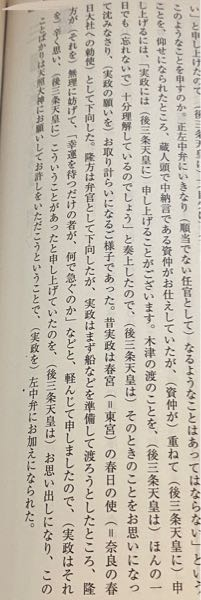 い」と申し上げたので、
このようなことを申すのか。正左中弁にいきなり(順当でない任官として)なるようなことはあってはならない」という
ことを、仰せになられたところ、蔵人頭で中納言である資仲がお仕えしていたが、(資仲が)重ねて(後三条天皇に)申
し上げるには、「実政には(後三条天皇に)申し上げることがございます。木津の渡のことを、(後三条天皇は)ほんの一
日でも(忘れないで)十分理解しているのでしょう」と奏上したので、(後三条天皇は)そのときのことをお思いになっ
て沈みなさり、(実政の願いを)お取り計らいになるご様子であった。昔実政は春宮(=東宮)の春日の使(=奈良の春
日大社への勅使)として下向した。隆方は弁官として下向したが、実政はまず船などを準備して渡ろうとしたところ、隆
方が(それを)無理に妨げて、「幸運を待つだけの者が、何で急ぐのか」などと、軽んじて申しましたので、(実政はそれ
を)辛く思い、(後三条天皇に)こういうことがあったと申し上げていたのを、(後三条天皇は)お思い出しになり、この
ことばかりは天照大神にお願いしてお許しをいただこうということで、(実政を)左中弁にお加えになられた。